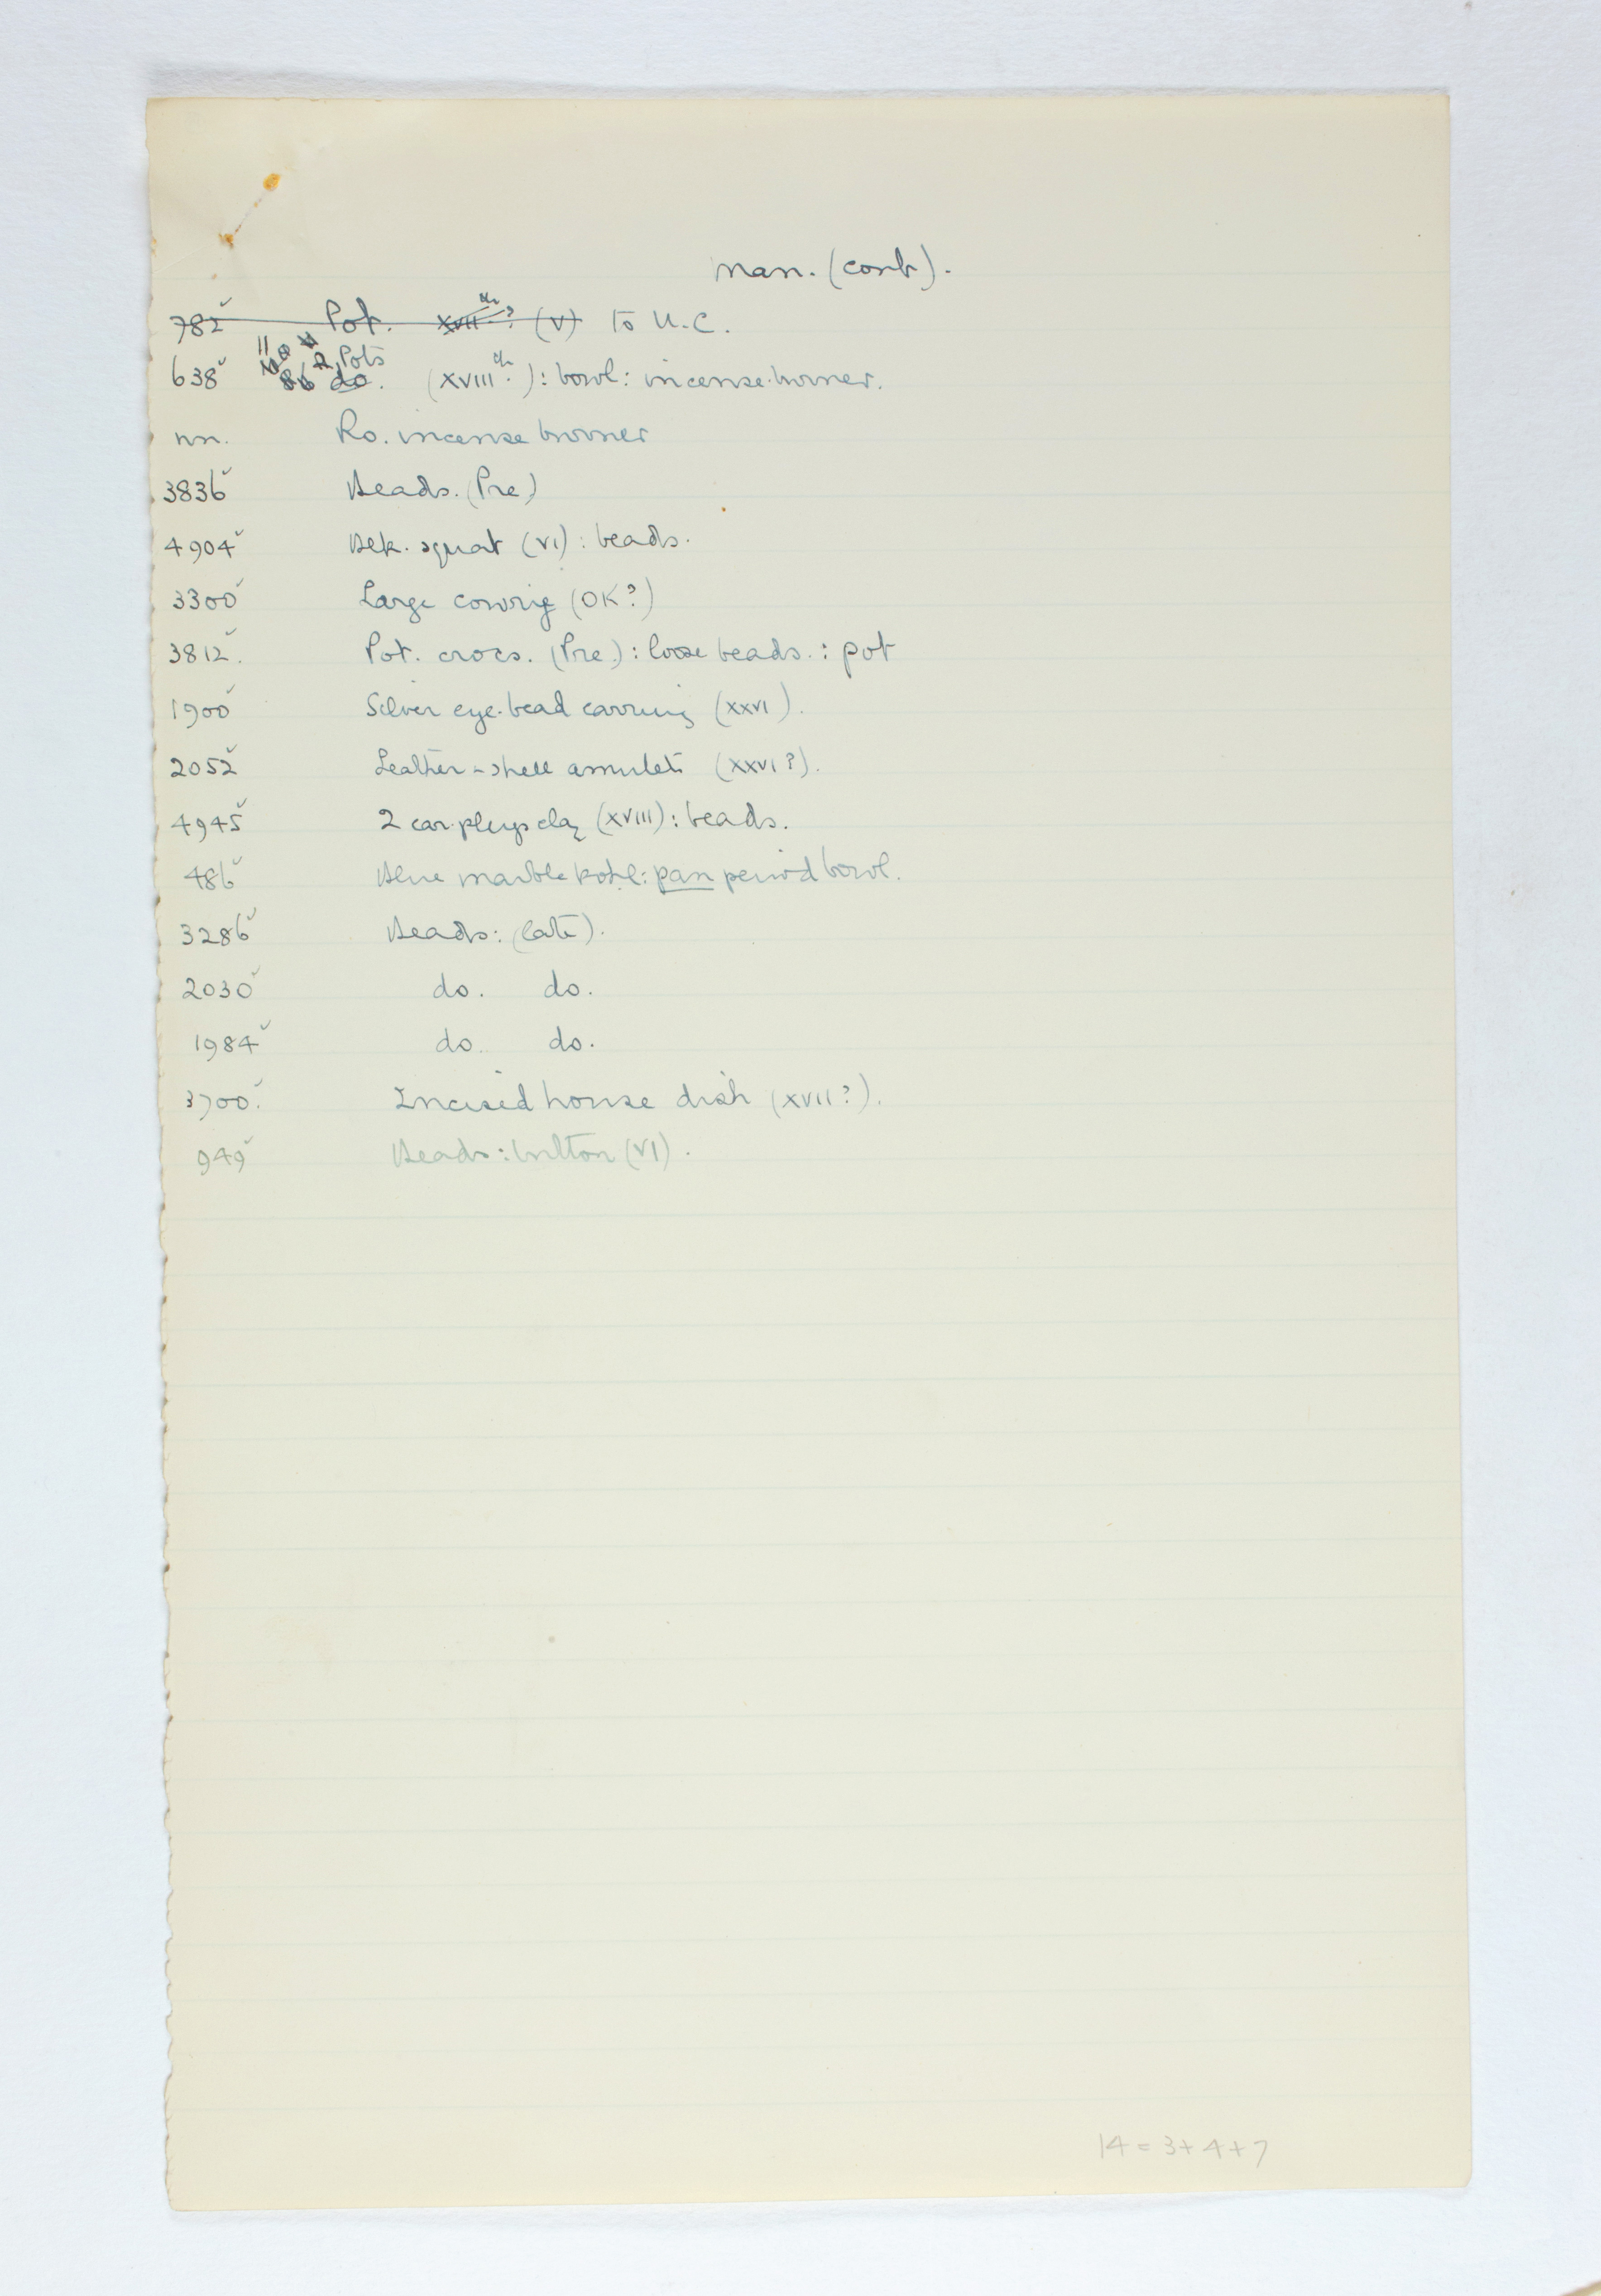 Man. (cont).
782 Pot. XVIIth.? (V) to U.C.
2 Pots
638 86 do. (XVIIIth.): bowl: incense-burner.
nn. Ro. incense burner
3836 Beads. (Pre)
4904 Blk. squat (VI): beads.
3300 Large cowrie (OK?)
3812. Pot. crocs. (Pre.): loose beads.: pot
1900 Silver eye-bead earring (XXVI).
2052 Leather - shell amulets (XXVI?).
4945 2 ear-plugs clay (XVIII): beads.
486 Blue marble kohl: pan period bowl.
3286 Beads: (late).
2030 do. do.
1984 do. do.
3700. Incised house dish (XVII?).
949 Beads: button (VI).
14 = 3 + 4 + 7